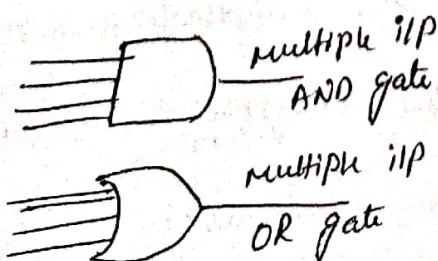 Multiple i/p
AND gate
Multiple i/p
OR gate